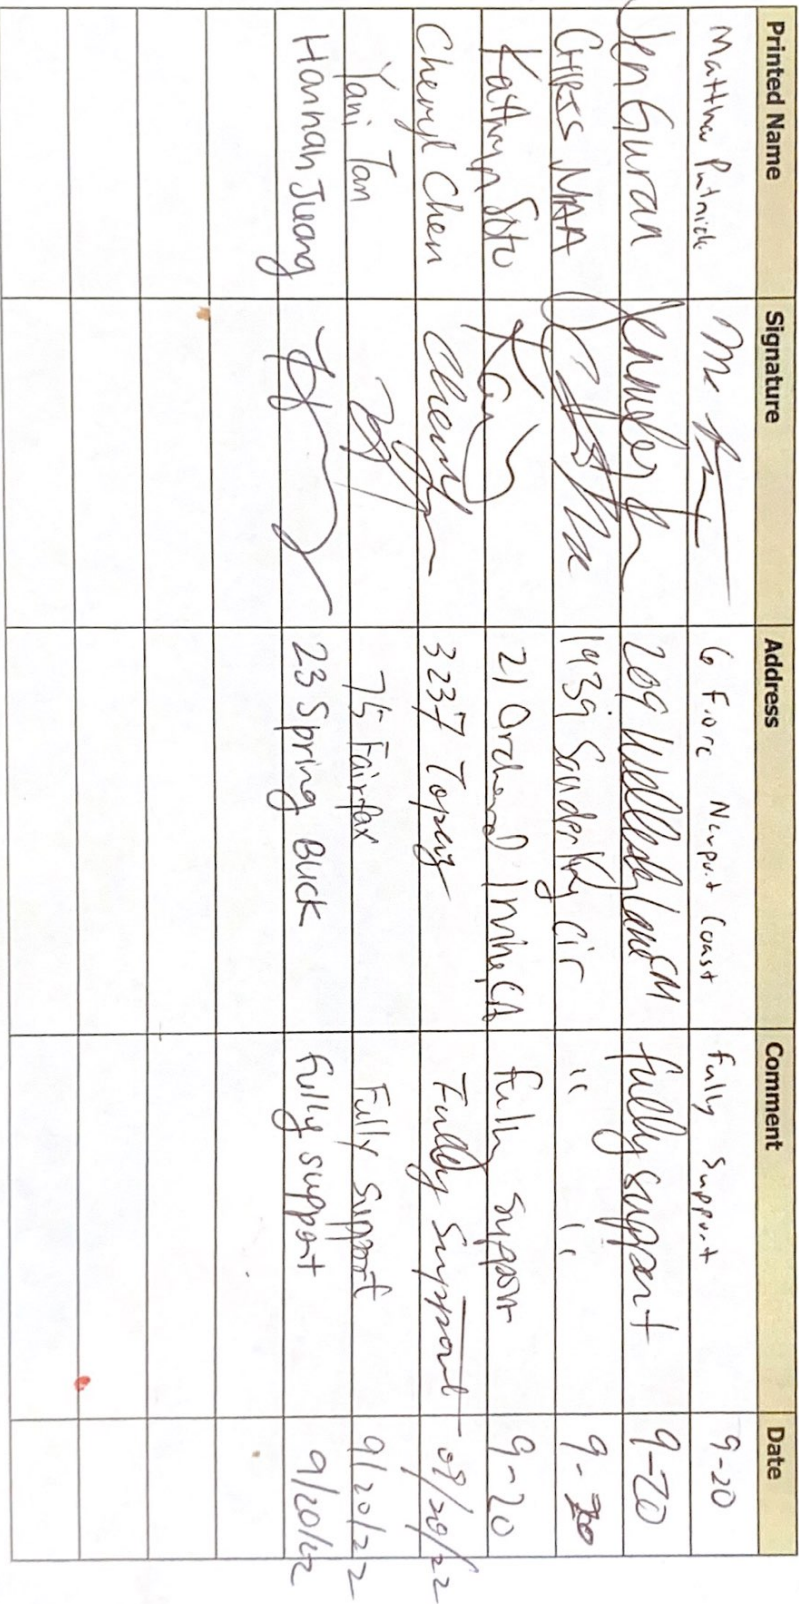 Printed Name Signature Address Comment Date
Matthew Putnick 6 Fiore Newport Coast Fully Support 9-20
Jen Guran 209 Lane fully support 9-20
CHRIS MAA 1939 Sanderling Cir " " 9-20
Kathryn Soto 21 Orchard Irvine, CA fully support 9-20
Cheryl Chen 3237 Topaz Fully Support 09/20/22
Yani Tan 75 Fairfax Fully Support 9/20/22
Hannah Jueng 23 Spring Buck fully support 9/20/22